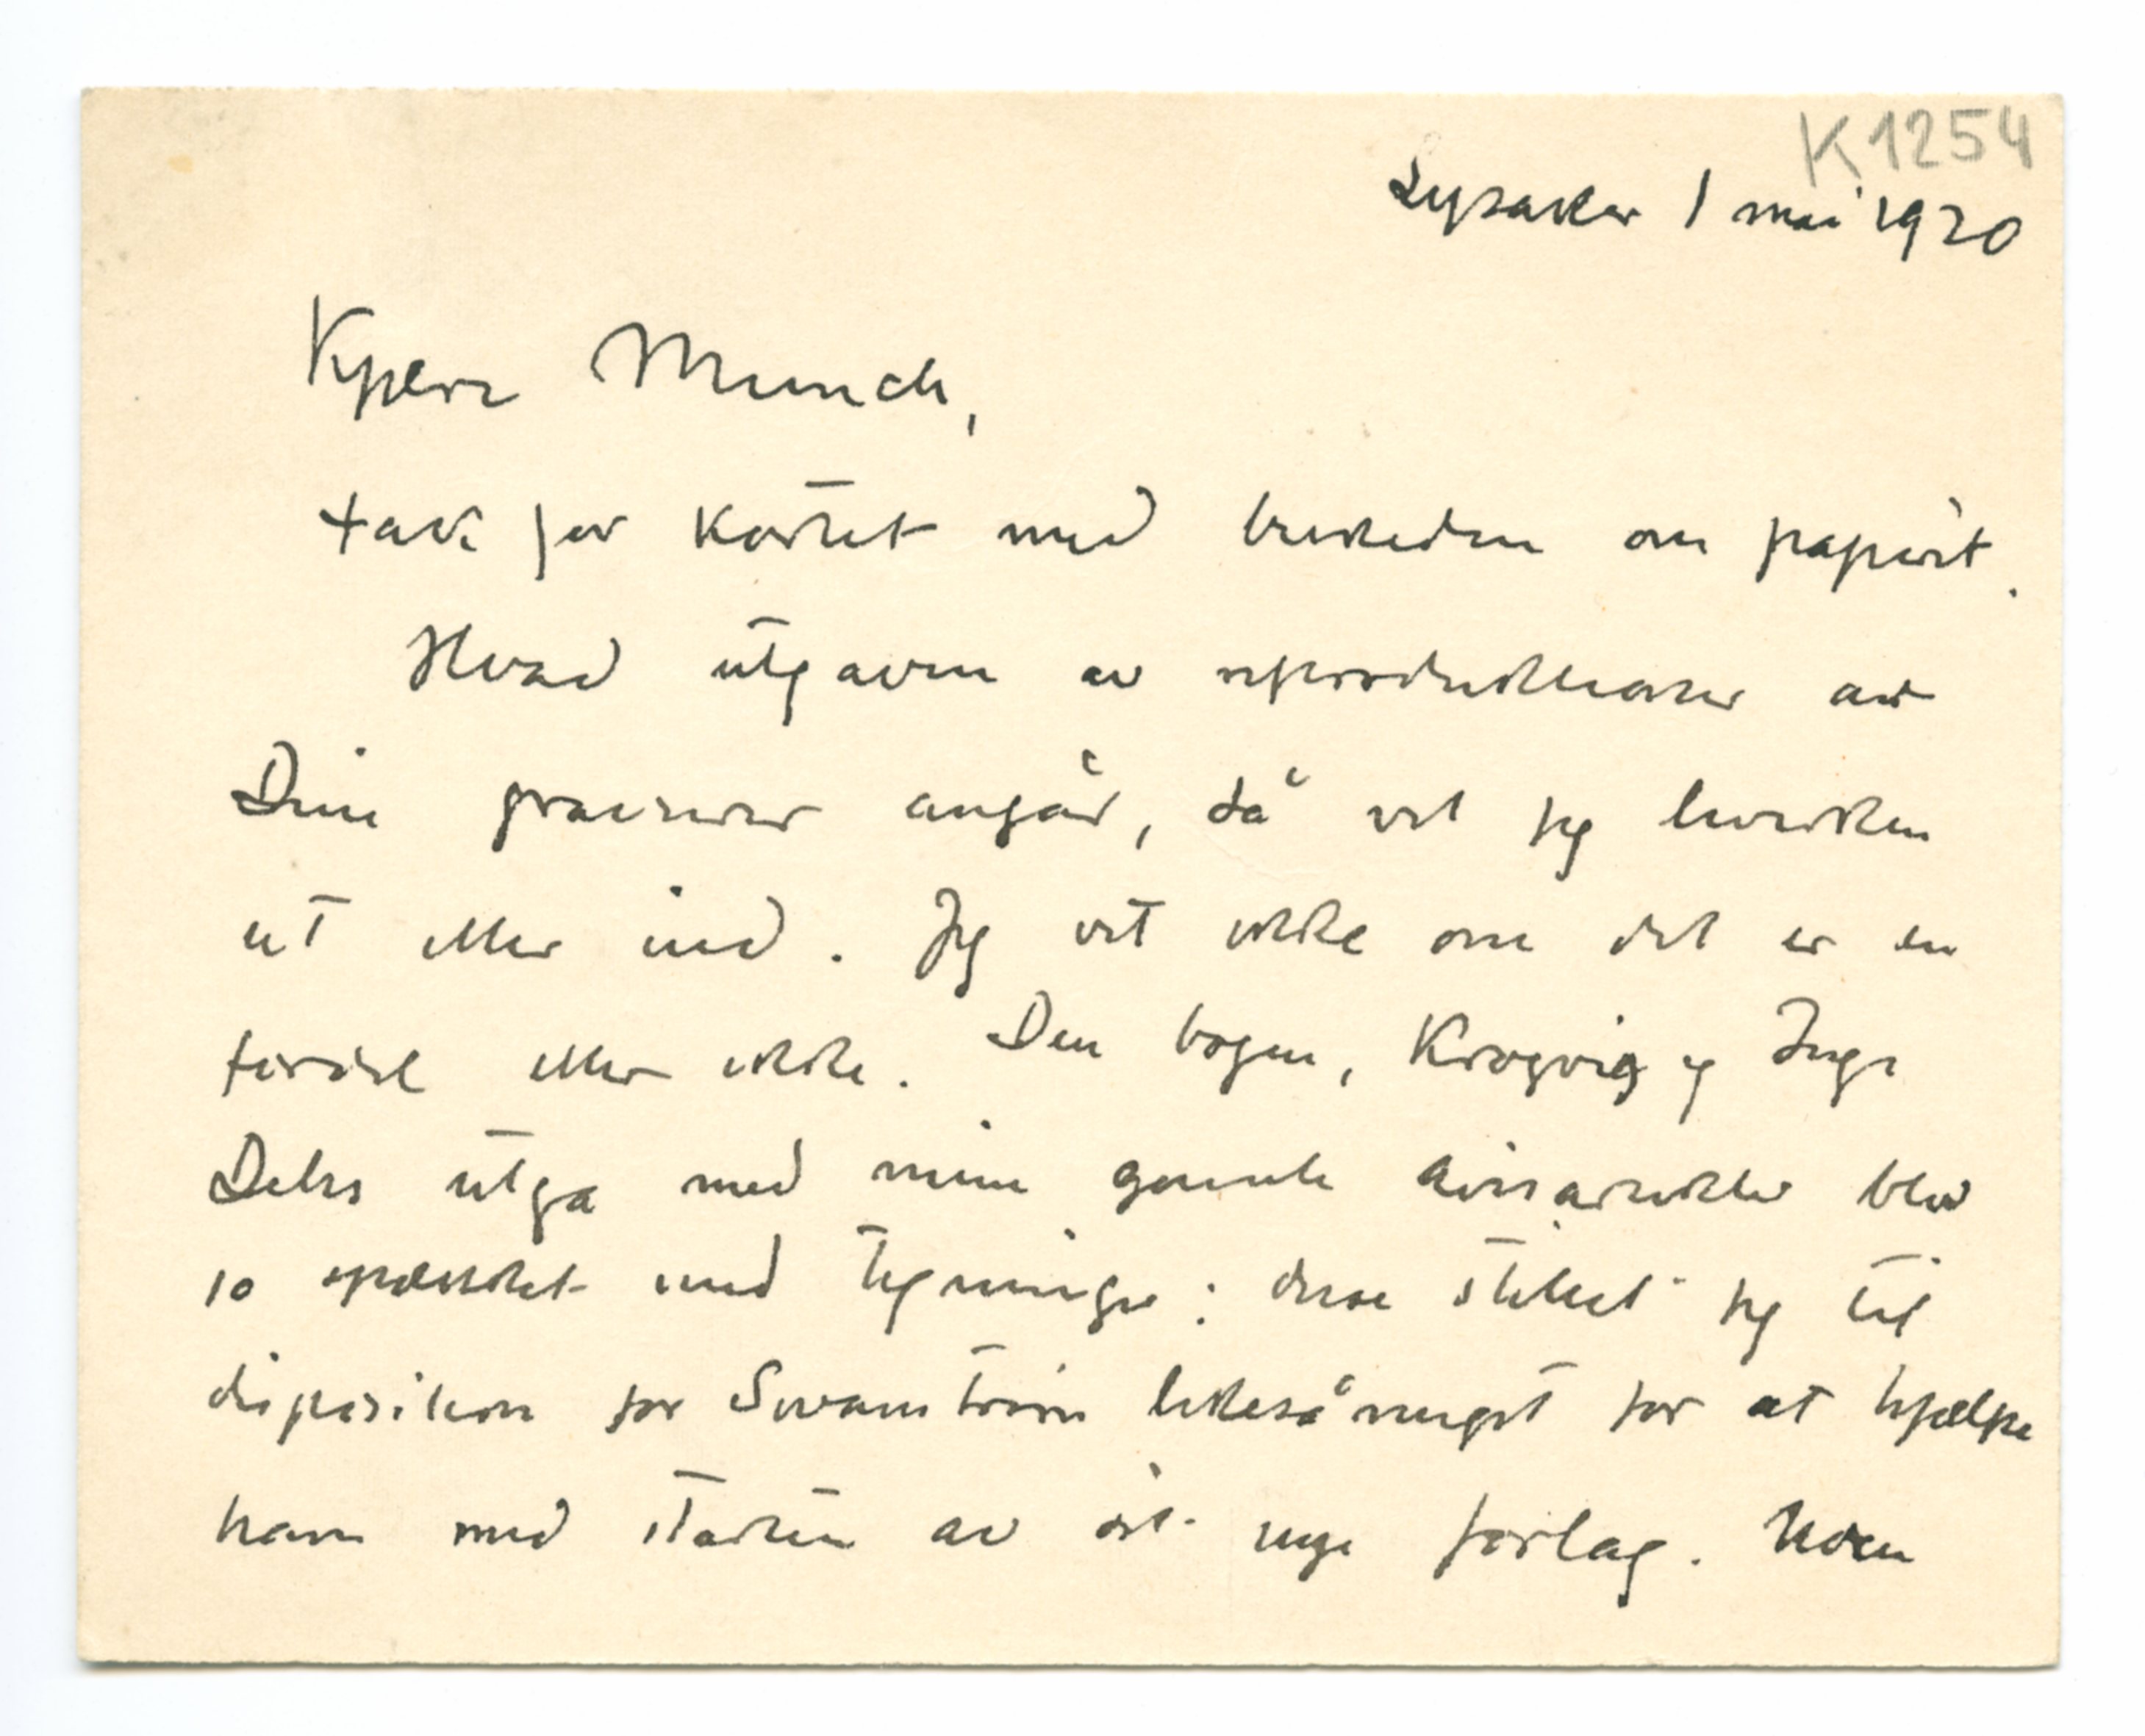 K1254
Lysaker 1 mai 1920
Kjære Munch,
tak for kortet med beskeden om papiret.
Hvad utgaven av reproduktioner av
Dine graverer angår, så vet jeg hverken
ut eller ind. Jeg vet ikke om det er en
fordel eller ikke. Den bogen, Krogvig og Inge
Debes utga med mine gamle avisartikler blev
jo utstyret med tegninger; disse stillet jeg til
disposition for Swanstrøm likesåmeget for at hjælpe
ham med starten av det nye forlag. Noen